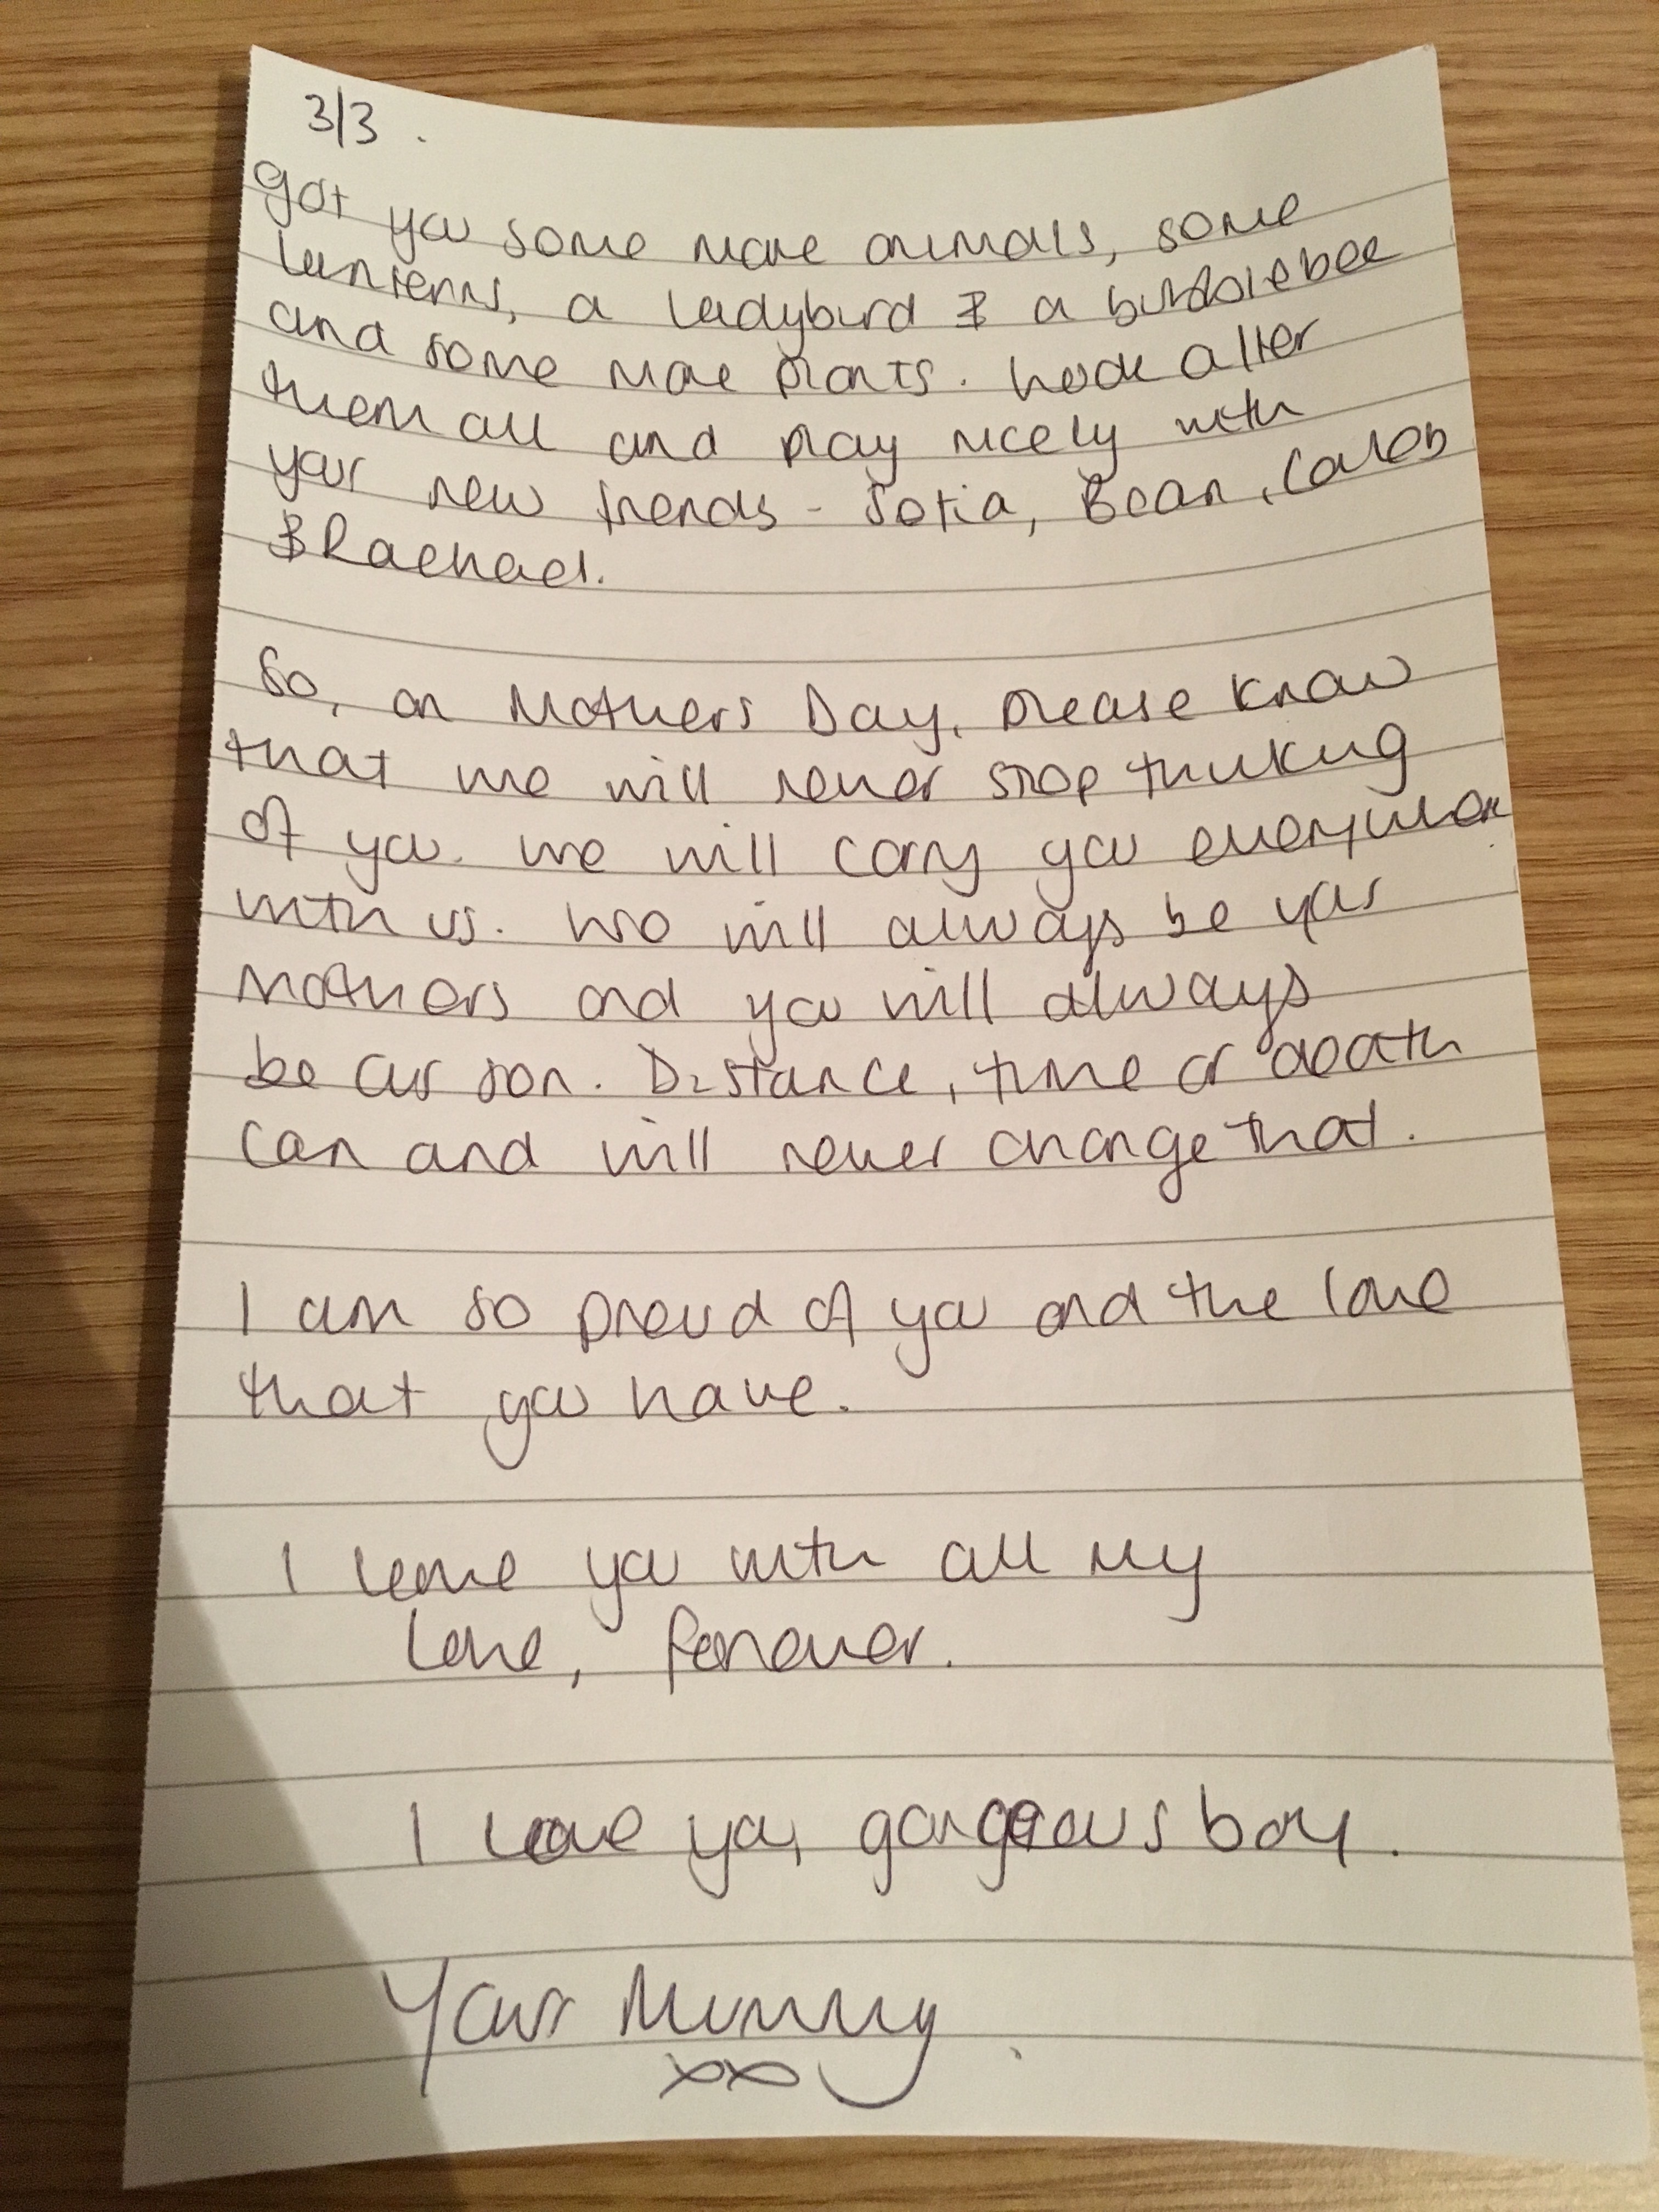 3/3.
got you some more animals, some
lanterns, a ladybird & a bumblebee
and some more plants. Look after
them all and play nicely with
your new friends - Sofia, Bean, Caleb
& Rachael.
So, on Mothers Day, please know
that we will never stop thinking
of you. We will carry you everywhere
with us. We will always be your
mothers and you will always
be our son. Distance, time or death
can and will never change that.
I am so proud of you and the love
that you have.
I leave you with all my
love, forever.
I love you, gorgeous boy.
Your Mummy.
xx